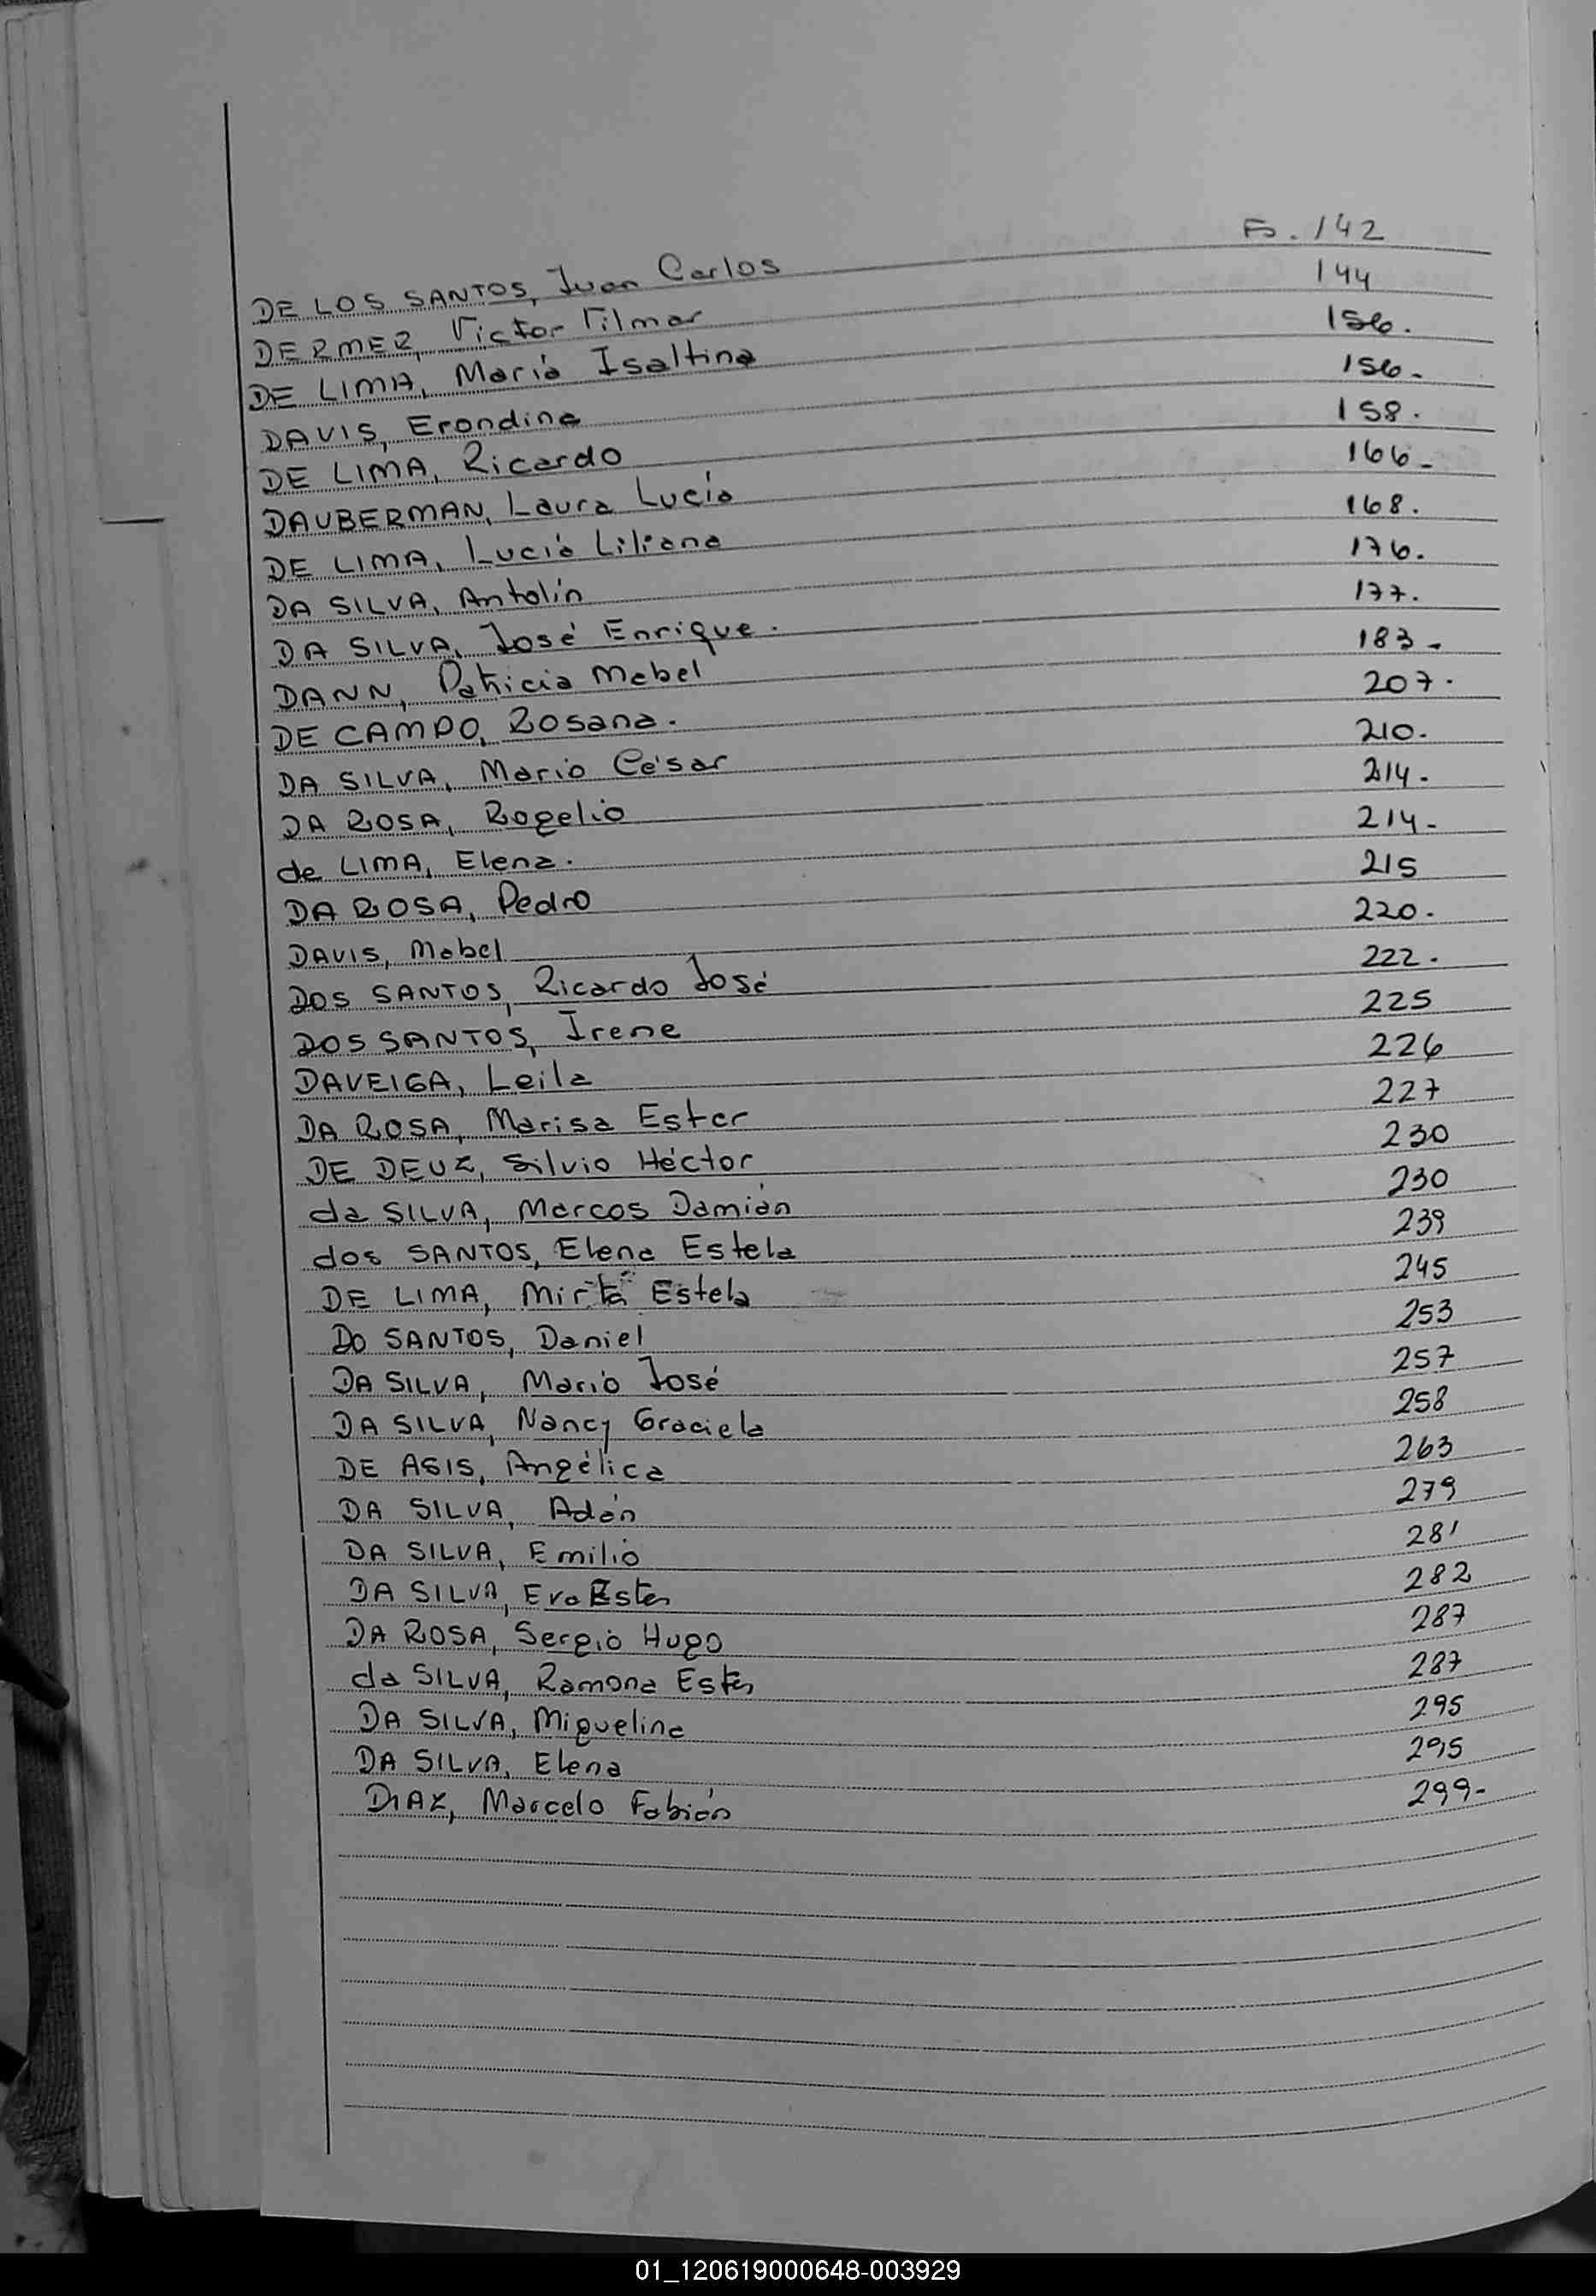 DE LOS SANTOS, Juan Carlos Fs. 142
DERMER, Victor Vilmar 144
DE LIMA, María Isaltina 156.
DAVIS, Erondina 156.
DE LIMA, Ricardo 158.
DAUBERMAN, Laura Lucía 166.
DE LIMA, Lucía Liliana 168.
DA SILVA, Antolín 176.
DA SILVA, José Enrique. 177.
DANN, Patricia Mabel 183.
DE CAMPO, Rosana. 207.
DA SILVA, Mario César 210.
DA ROSA, Rogelio 214.
de LIMA, Elena. 214.
DA ROSA, Pedro 215
DAVIS, Mabel 220.
DOS SANTOS, Ricardo José 222.
DOS SANTOS, Irene 225
DAVEIGA, Leila 226
DA ROSA, Marisa Ester 227
DE DEUZ, Silvio Héctor 230
da SILVA, Marcos Damián 230
dos SANTOS, Elena Estela 239
DE LIMA, Mirta Estela 245
DO SANTOS, Daniel 253
DA SILVA, Mario José 257
DA SILVA, Nancy Graciela 258
DE ASIS, Angélica 263
DA SILVA, Adán 279
DA SILVA, Emilio 281
DA SILVA, Eva Ester 282
DA ROSA, Sergio Hugo 287
da SILVA, Ramona Ester 287
DA SILVA, Miguelina 295
DA SILVA, Elena 295
DIAZ, Marcelo Fabián 299-
01_120619000648-003929